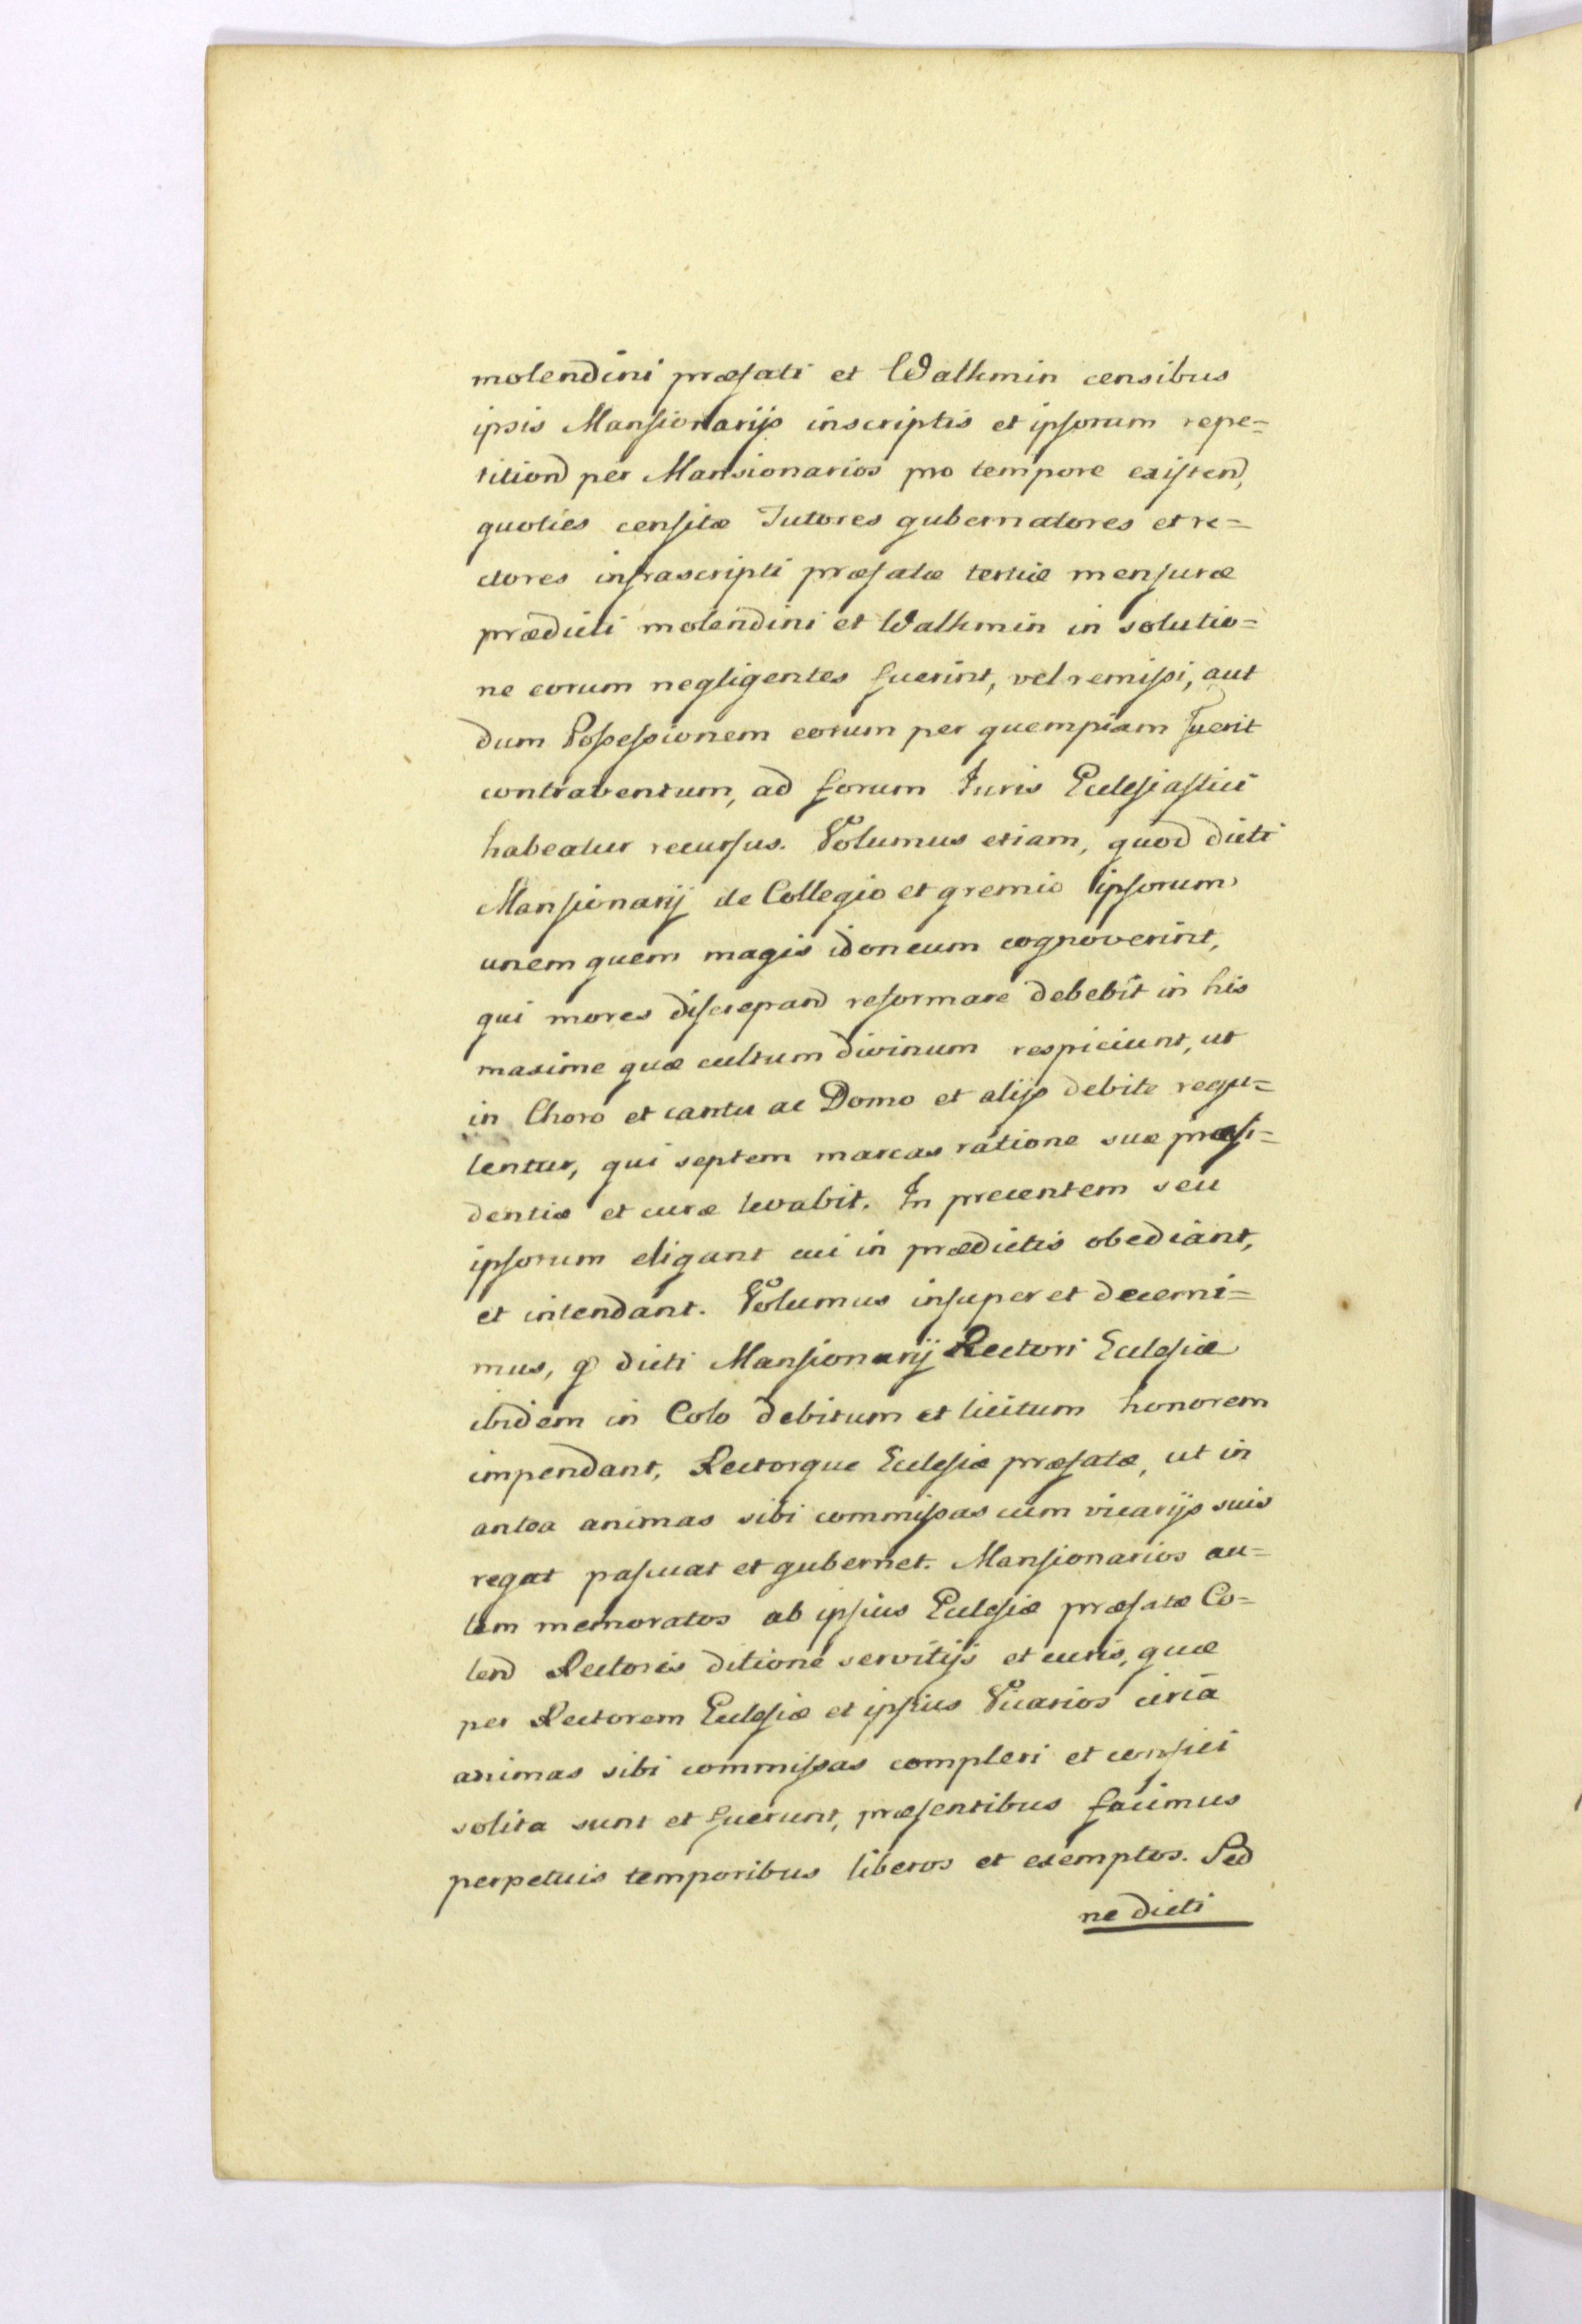 molendini præfati et Walkmin censibus
ipsis Mansionarijs inscriptis et ipsorum repe=
titiond per Mansionarios pro tempore existend,
quoties censitæ Tutores gubernatores et re=
ctores infrascripti præfatæ tertiæ mensuræ
prædicti molendini et Walkmin in solutio=
ne eorum negligentes fuerint, vel remissi, aut
dum Possessionem eorum per quempiam fuerit
contraventum, ad forum Juris Ecclesiastici
habeatur recursus. Volumus etiam, quod dicti
Mansionarij de Collegio et gremio ipsorum
unem quem magis idoneum cognoverint,
qui mores discrepand reformare debebit in his
maxime quæ cultum divinum respiciunt, ut
in Choro et cantu ac Domo et alijs debite regu=
lentur, qui septem marcas ratione suæ præsi=
dentiæ et curæ levabit. In precentem seu
ipsorum eligant cui in prædictis obediant,
et intendant. Volumus insuper et decerni=
mus, q dicti Mansionarij Rectori Ecclesiæ
ibidem in Colo debitum et licitum honorem
impendant, Rectorque Ecclesiæ præfatæ, ut in
antea animas sibi commissas cum vicarijs suis
regat pascuat et gubernet. Mansionarios au=
tem memoratos ab ipsius Ecclesiæ præfatæ Co=
lend Rectoris ditione servitijs et curis, quæ
per Rectorem Ecclesiæ et ipsius Vicarios circa
animas sibi commissas compleri et consici
solita sunt et fuerunt, præsentibus facimus
perpetuis temporibus liberos et exemptos. Sed
ne dicti